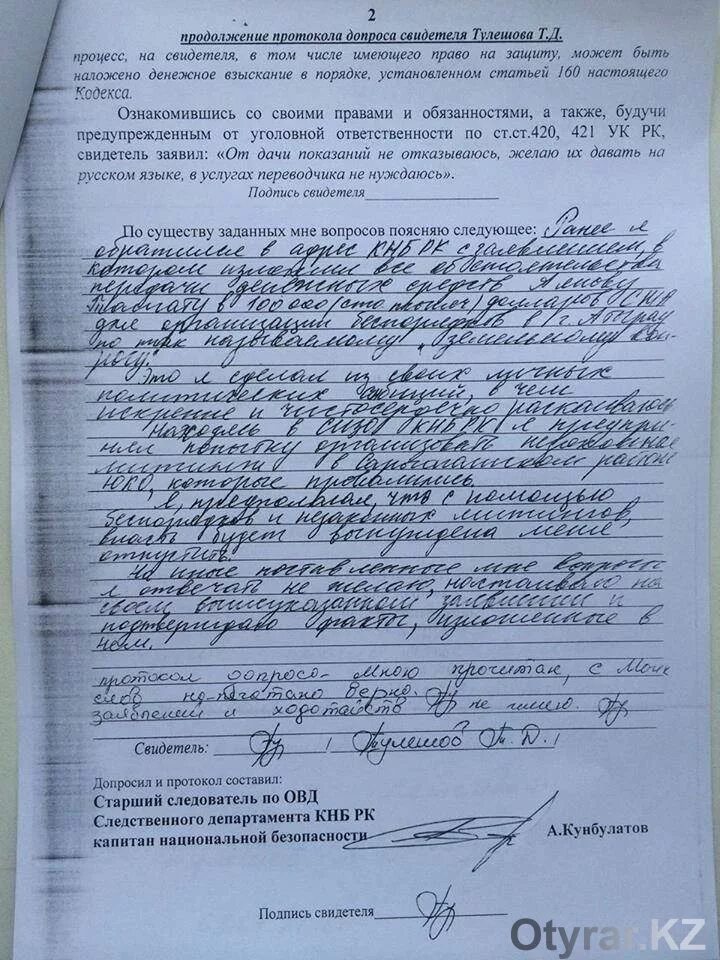 2
продолжение протокола допроса свидетеля Тулешова Т.Д.
процесс, на свидетеля, в том числе имеющего право на защиту, может быть
наложено денежное взыскание в порядке, установленном статьей 160 настоящего
Кодекса.
Ознакомившись со своими правами и обязанностями, а также, будучи
предупрежденным от уголовной ответственности по ст.ст.420, 421 УК РК,
свидетель заявил: «От дачи показаний не отказываюсь, желаю их давать на
русском языке, в услугах переводчика не нуждаюсь».
Подпись свидетеля
По существу заданных мне вопросов поясняю следующее: Ранее я
обратился в адрес КНБ РК с заявлением, в
котором изложил все обстоятельства
передачи денежных средств Аянову
Талгату в 100 000 (сто тысяч) долларов США
для организации беспорядков в г. Атырау
по так называемому „земельному воп-
росу".
Это я сделал из своих личных
политических амбиций, в чем
искренне и чистосердечно раскаиваюсь
Находясь в СИЗО КНБ РК я предпри-
нял попытку организовать незаконные
митинги в Сарыагашском районе
ЮКО, которые провалились.
Я, предполагал, что с помощью
беспорядков и незаконных митингов,
власть будет вынуждена меня
отпустить.
На иные поставленные мне вопросы
я отвечать не желаю, настаиваю на
своем вышеуказанном заявлении и
подтверждаю факты, изложенные в
нем.
протокол допроса мною прочитан, с моих
слов напечатано верно.
заявлений и ходатайств не имею.
Свидетель: / Тулешов Т. Д. /
Допросил и протокол составил:
Старший следователь по ОВД
Следственного департамента КНБ РК
капитан национальной безопасности А.Кунбулатов
Подпись свидетеля
Otyrar.KZ